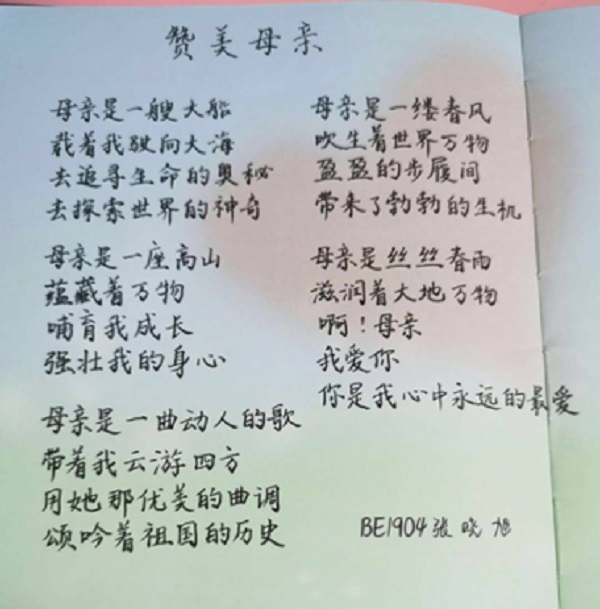 赞美母亲
母亲是一艘大船
载着我驶向大海
去追寻生命的奥秘
去探索世界的神奇
母亲是一座高山
蕴藏着万物
哺育我成长
强壮我的身心
母亲是一曲动人的歌
带着我云游四方
用她那优美的曲调
颂吟着祖国的历史
母亲是一缕春风
吹生着世界万物
盈盈的步履间
带来了勃勃的生机
母亲是丝丝春雨
滋润着大地万物
啊！母亲
我爱你
你是我心中永远的最爱
BE1904张晓旭